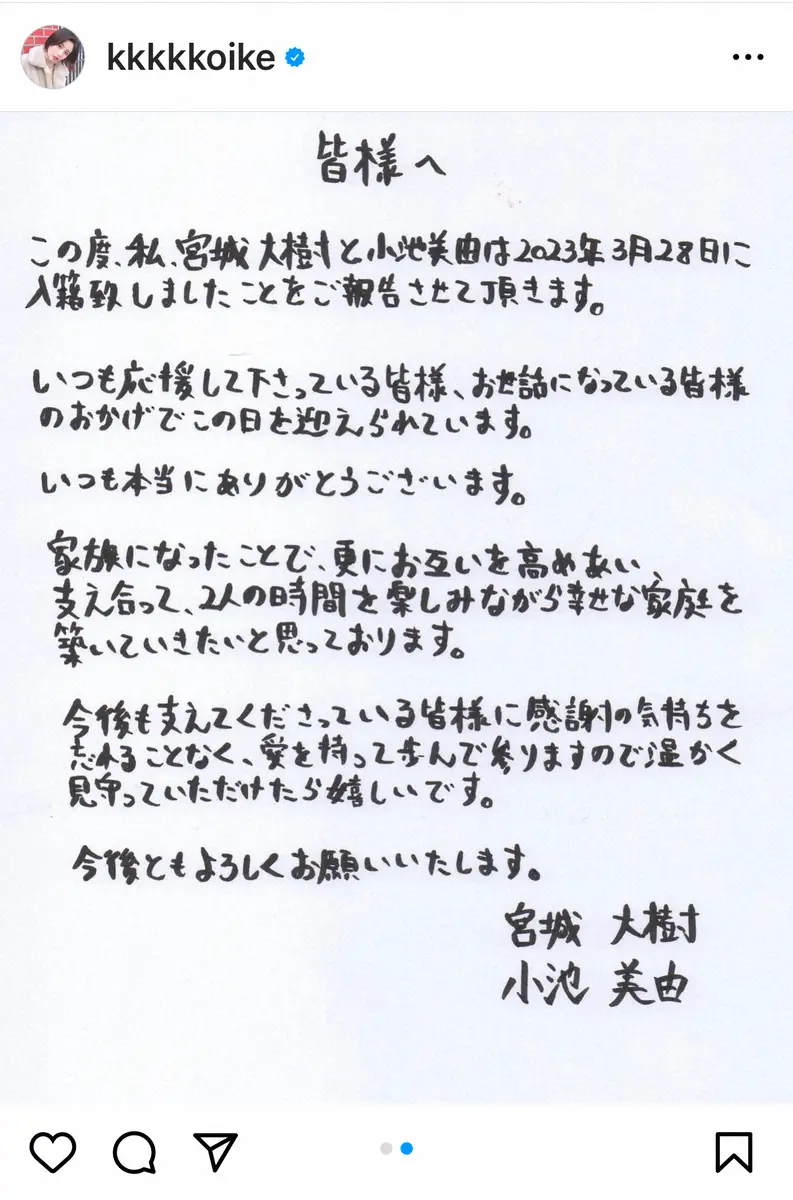 kkkkkoike
皆様へ
この度、私、宮城大樹と小池美由は2023年3月28日に
入籍致しましたことをご報告させて頂きます。
いつも応援して下さっている皆様、お世話になっている皆様
のおかげでこの日を迎えられています。
いつも本当にありがとうございます。
家族になったことで、更にお互いを高めあい、
支え合って、2人の時間を楽しみながら幸せな家庭を
築いていきたいと思っております。
今後も支えてくださっている皆様に感謝の気持ちを
忘れることなく、愛を持って歩んで参りますので温かく
見守っていただけたら嬉しいです。
今後ともよろしくお願いいたします。
宮城 大樹
小池 美由